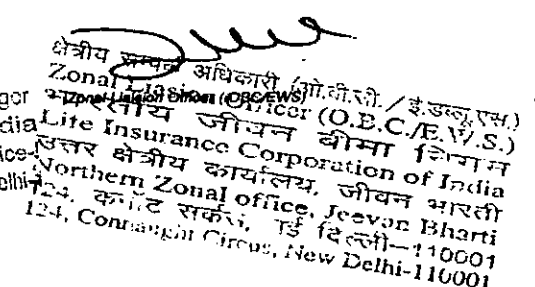 क्षेत्रीय सम्पर्क अधिकारी (ओ.बी.सी. / ई.डब्लू.एस.)
Zonal Liaison Officer (O.B.C./E.W.S.)
Zonal Liaison Officer (OBC/EWS)
भारतीय जीवन बीमा निगम
Life Insurance Corporation of India
उत्तर क्षेत्रीय कार्यालय, जीवन भारती
Northern Zonal office, Jeevan Bharti
124, कनॉट सर्कस, नई दिल्ली-110001
124, Connaught Circus, New Delhi-110001